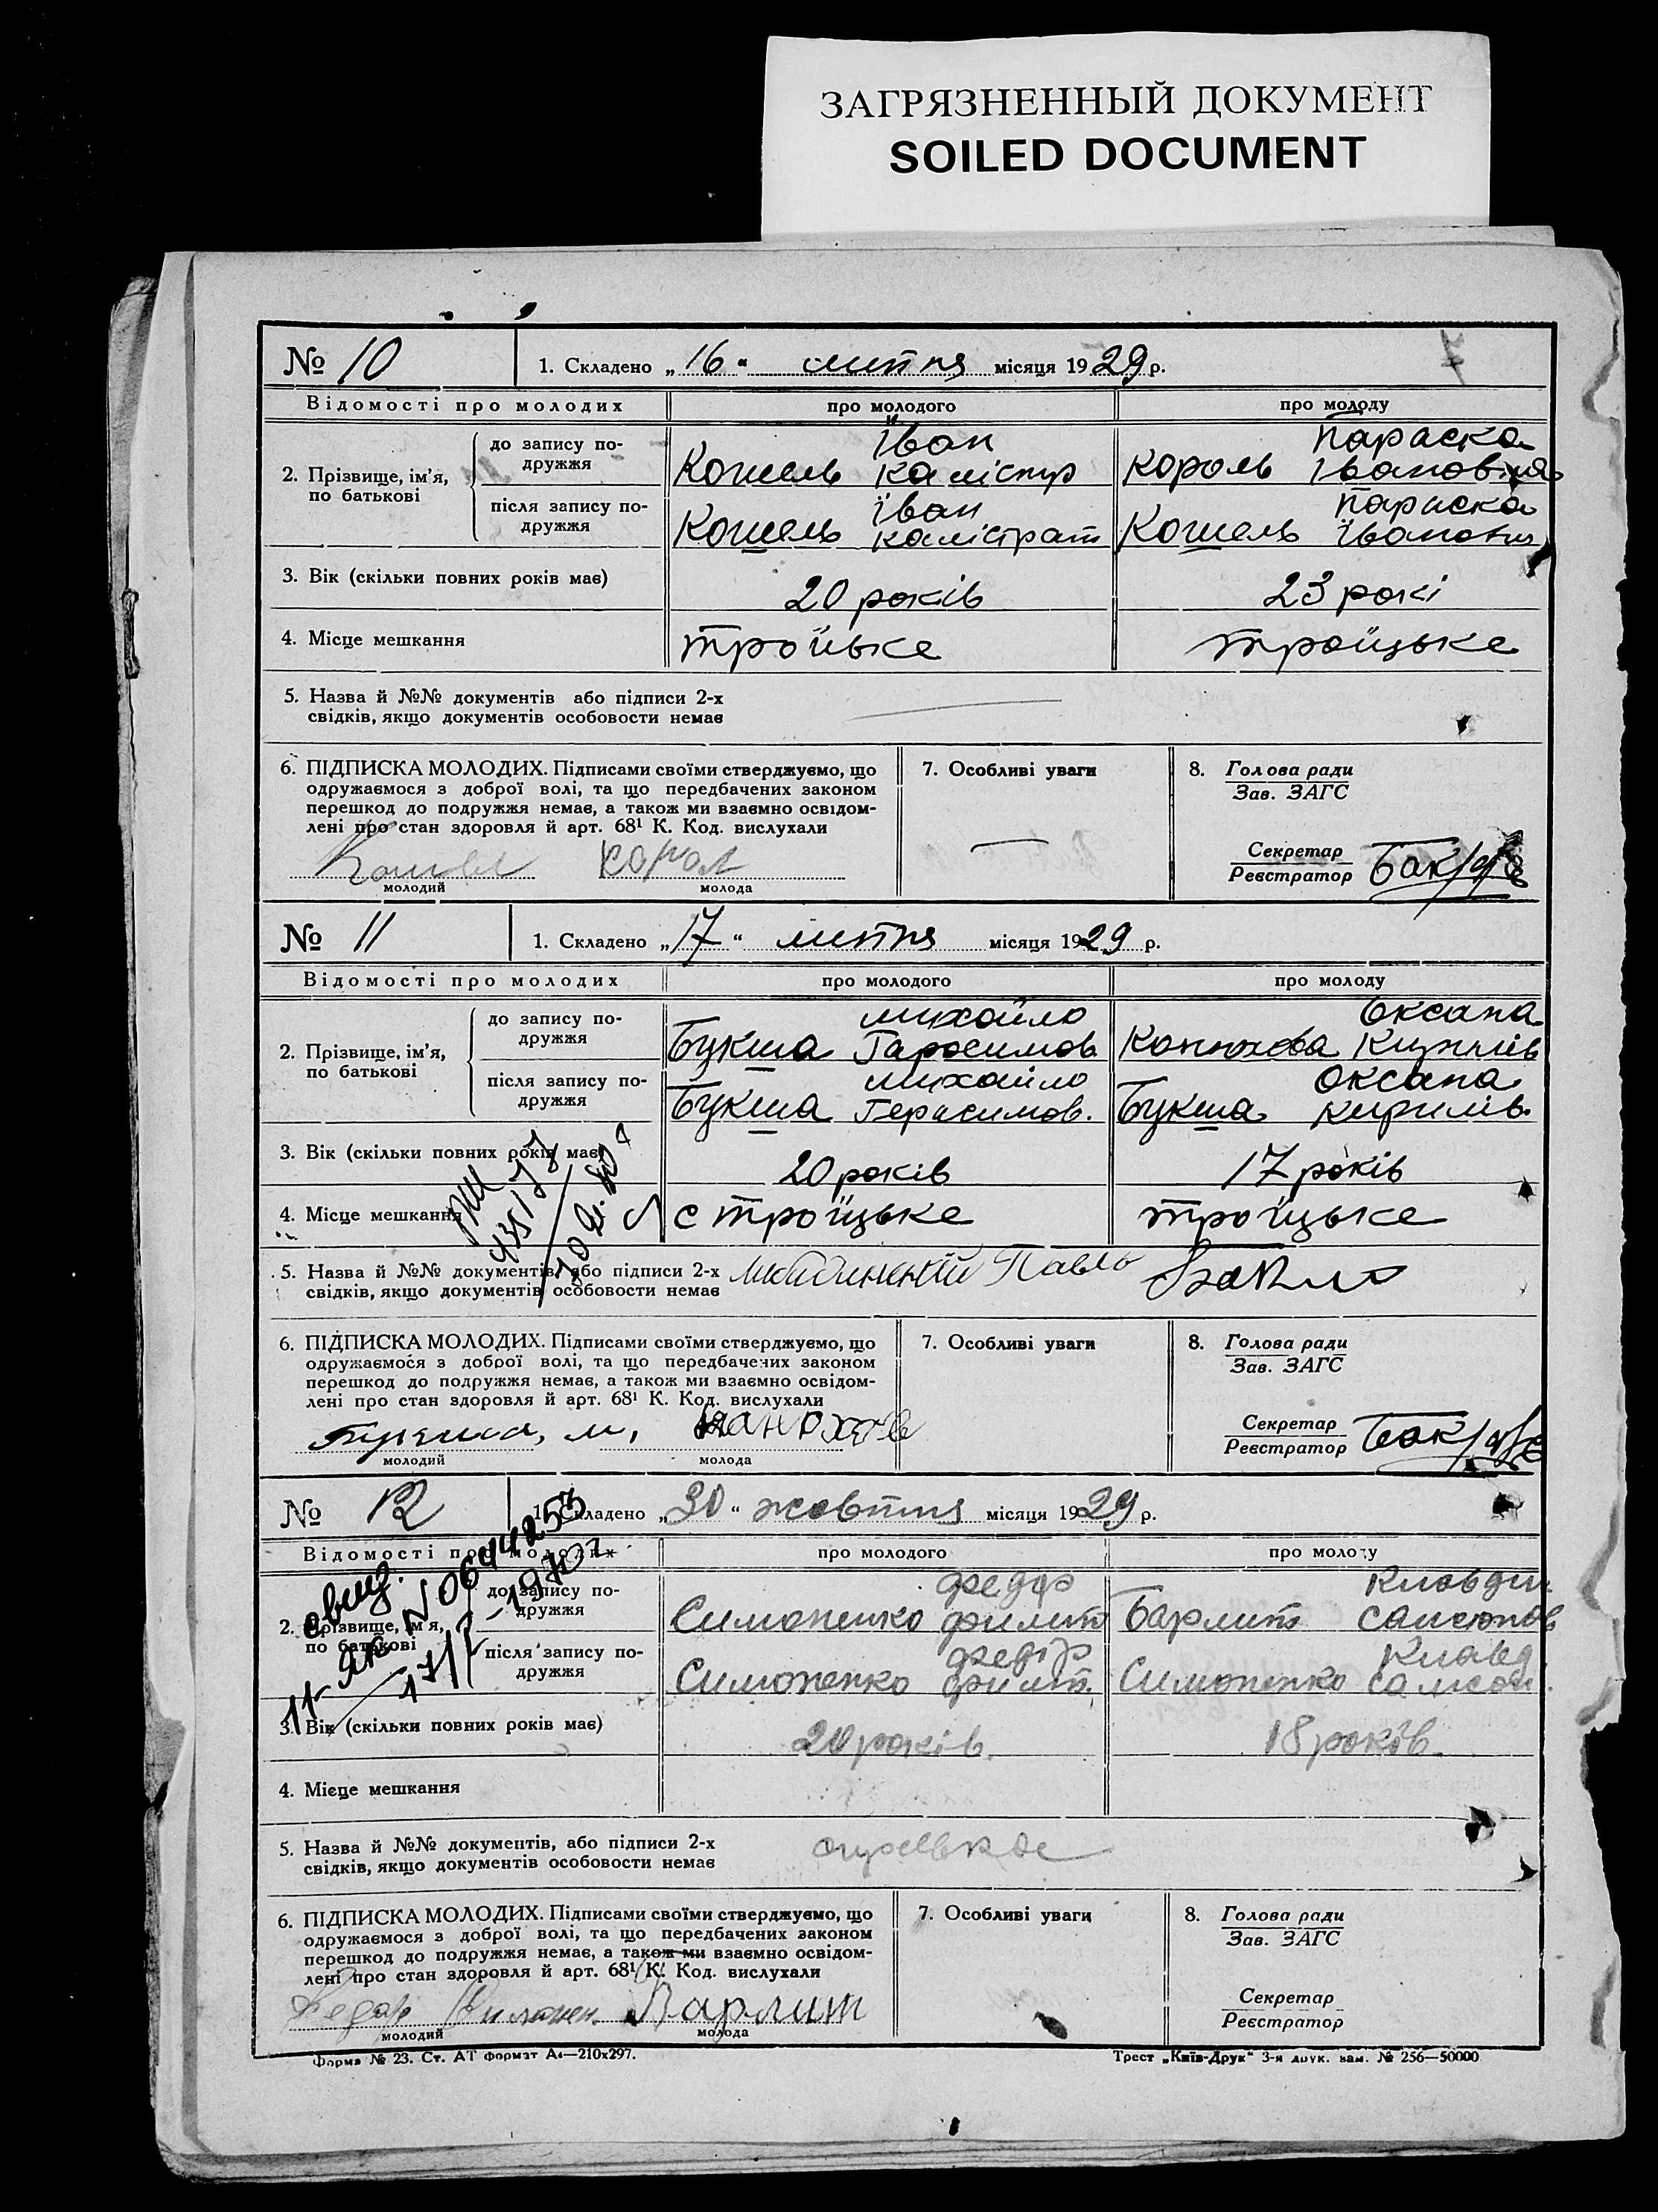 ЗАГРЯЗНЕННЫЙ ДОКУМЕНТ
SOILED DOCUMENT
№ 10
1. Складено „16“ липня місяця 1929 р.
Відомості про молодих
про молодого
про молоду
2. Прізвище, ім'я, по батькові
до запису подружжя
Іван
Кошель
Параска
Король Івановна
після запису подружжя
Іван
Кошель Калістрат
Параска
Кошель Івановна
3. Вік (скільки повних років має)
20 років
23 рокі
4. Місце мешкання
Троїцьке
5. Назва й №№ документів або підписи 2-х
свідків, якщо документів особовости немає
6. ПІДПИСКА МОЛОДИХ. Підписами своїми стверджуємо, що
одружаємося з доброї волі, та що передбачених законом
перешкод до подружжя немає, а також ми взаємно освідом-
лені про стан здоровля й арт. 68¹ К. Код. вислухали
Корол
молодий
молода
7. Особливі уваги
8. Голова ради
Зав. ЗАГС
Секретар
Реєстратор
№ 11
1. Складено „17“ липня місяця 1929 р.
Відомості про молодих
про молодого
про молоду
2. Прізвище, ім'я,
по батькові
до запису по-
дружжя
Михайло
Букша
Оксана
Канюхова
після запису по-
дружжя
Михайло
Букша Герасимов.
Оксана
Букша Кирилів.
3. Вік (скільки повних років має)
20 років
17 років
4. Місце мешкання
с Троїцьке
Троїцьке
5. Назва й №№ документів, або підписи 2-х
Павло
свідків, якщо документів особовости немає
6. ПІДПИСКА МОЛОДИХ. Підписами своїми стверджуємо, що
одружаємося з доброї волі, та що передбачених законом
перешкод до подружжя немає, а також ми взаємно освідом-
лені про стан здоровля й арт. 68¹ К. Код. вислухали
молодий
молода
7. Особливі уваги
8. Голова ради
Зав. ЗАГС
Секретар
Реєстратор
№ 12
1. Складено „30“ жовтня місяця 1929 р.
Відомості про молодих
про молодого
про молоду
2. Прізвище, ім'я,
по батькові
до запису по-
дружжя
Симоненко
Барлит
після запису по-
дружжя
Федір
Симоненко Филип.
Клавд
Симоненко Самсон.
3. Вік (скільки повних років має)
20 років.
18 років.
4. Місце мешкання
5. Назва й №№ документів, або підписи 2-х
свідків, якщо документів особовости немає
6. ПІДПИСКА МОЛОДИХ. Підписами своїми стверджуємо, що
одружаємося з доброї волі, та що передбачених законом
перешкод до подружжя немає, а також ми взаємно освідом-
лені про стан здоровля й арт. 68¹ К. Код. вислухали
Барлит
молодий
молода
7. Особливі уваги
8. Голова ради
Зав. ЗАГС
Секретар
Реєстратор
Форма № 23. Ст. АТ Формат А₄—210х297.
Трест „Київ-Друк“ 3-я друк. зам. № 256—50000